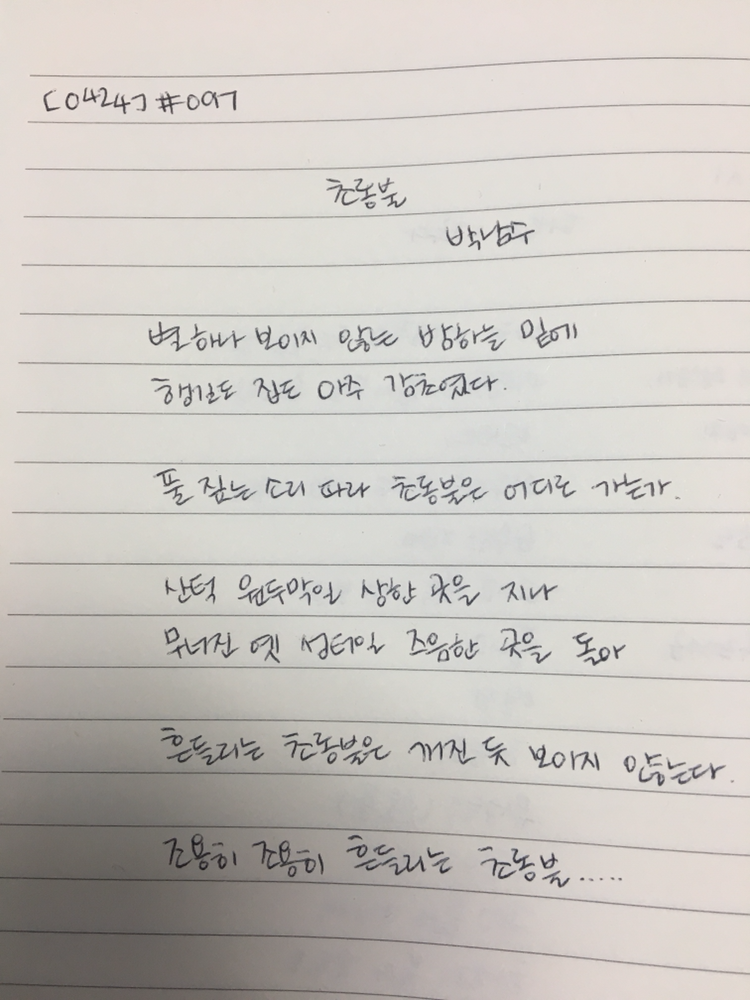 [0424] #097
초롱불
박남수
별 하나 보이지 않는 밤하늘 밑에
행길도 집도 아주 감초였다.
풀 짚는 소리 따라 초롱불은 어디로 가는가.
산턱 원두막일 상한 곳을 지나
무너진 옛 성터일 즈음한 곳을 돌아
흔들리는 초롱불은 꺼진 듯 보이지 않는다.
조용히 조용히 흔들리는 초롱불.....